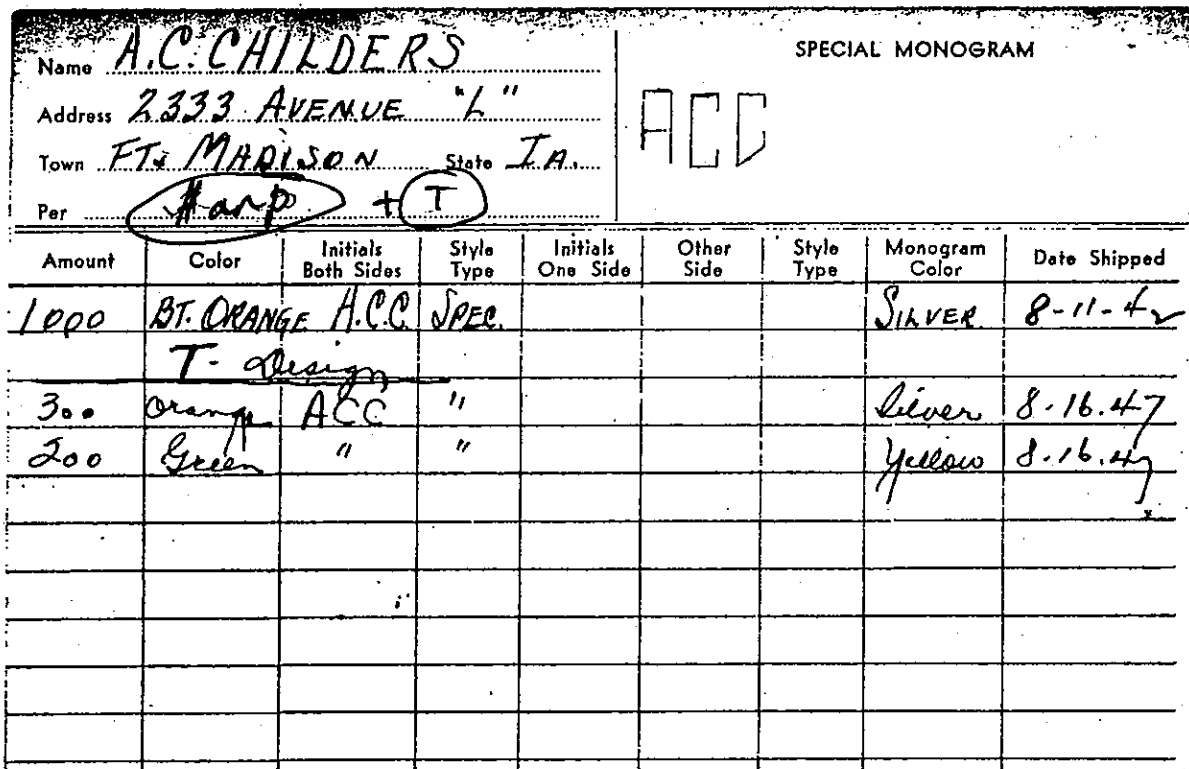 Name A.C. CHILDERS
SPECIAL MONOGRAM
Address 2333 AVENUE "L"
ACC
Town FT. MADISON State IA.
Per Harp + T
Amount Color Initials Both Sides Style Type Initials One Side Other Side Style Type Monogram Color Date Shipped
1000 BT. ORANGE A.C.C. SPEC. SILVER 8-11-42
T- Design
300 Orange ACC " Silver 8-16.47
200 Green " " Yellow 8.16.47